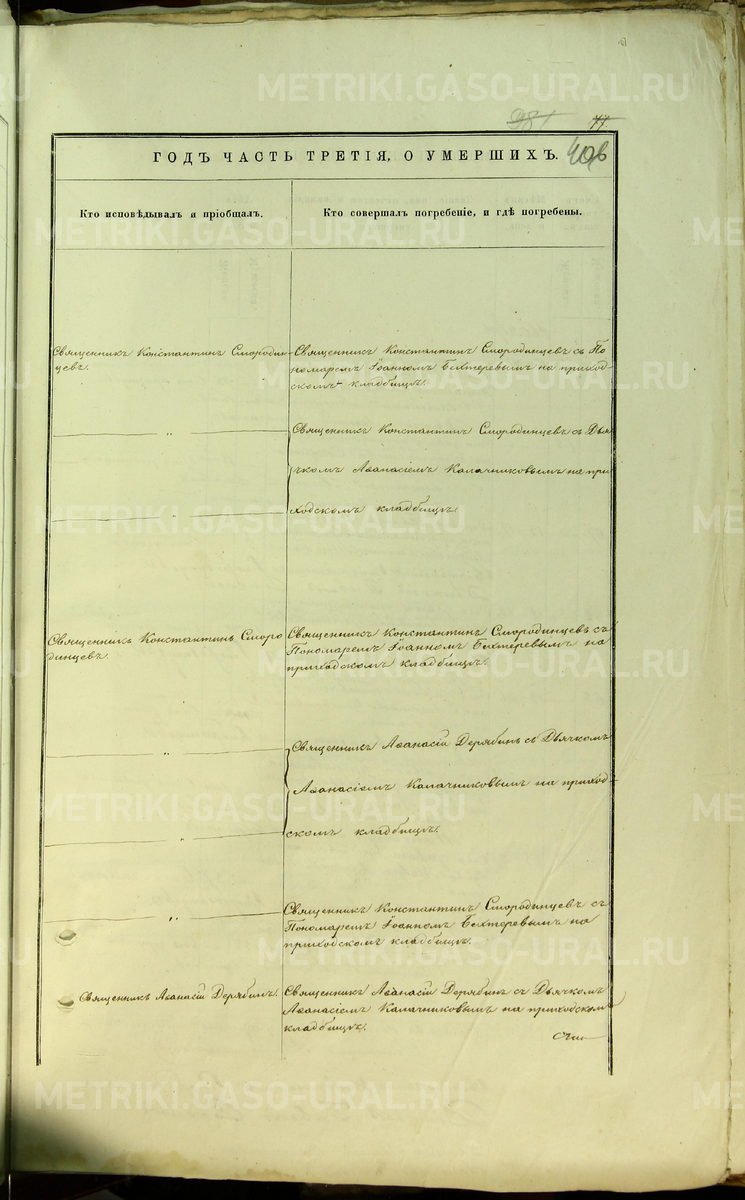 METRIKI.GASO-URAL.RU
981 77
ГОДЪ ЧАСТЬ ТРЕТІЯ, О УМЕРШИХЪ. 406
Кто исповѣдывалъ и пріобщалъ.
Кто совершалъ погребеніе, и гдѣ погребены.
Священникъ Константинъ Смородин-
цевъ.
Священникъ Константинъ Смородинцевъ съ По
номаремъ Іоанномъ Бехтеревымъ на приход-
скомъ кладбищѣ.
„
Священникъ Константинъ Смородинцевъ съ Дья
чкомъ Аѳанасіемъ Калачниковымъ на при
ходскомъ кладбищѣ.
„
METRIKI.GASO-URAL.RU
Священникъ Константинъ Сморо
динцевъ.
Священникъ Константинъ Смородинцевъ съ
Пономаремъ Іоанномъ Бехтеревымъ на
приходскомъ кладбищѣ.
„
Священникъ Аѳанасій Дерябинъ съ Дьячкомъ
Аѳанасіемъ Калачниковымъ на приход-
скомъ кладбищѣ.
„
METRIKI.GASO-URAL.RU
„
Священникъ Константинъ Смородинцевъ съ
Пономаремъ Іоанномъ Бехтеревымъ на
приходскомъ кладбищѣ.
Священникъ Аѳанасій Дерябинъ.
Священникъ Аѳанасій Дерябинъ съ Дьячкомъ
Аѳанасіемъ Калачниковымъ на приходскомъ
кладбищѣ.
METRIKI.GASO-URAL.RU